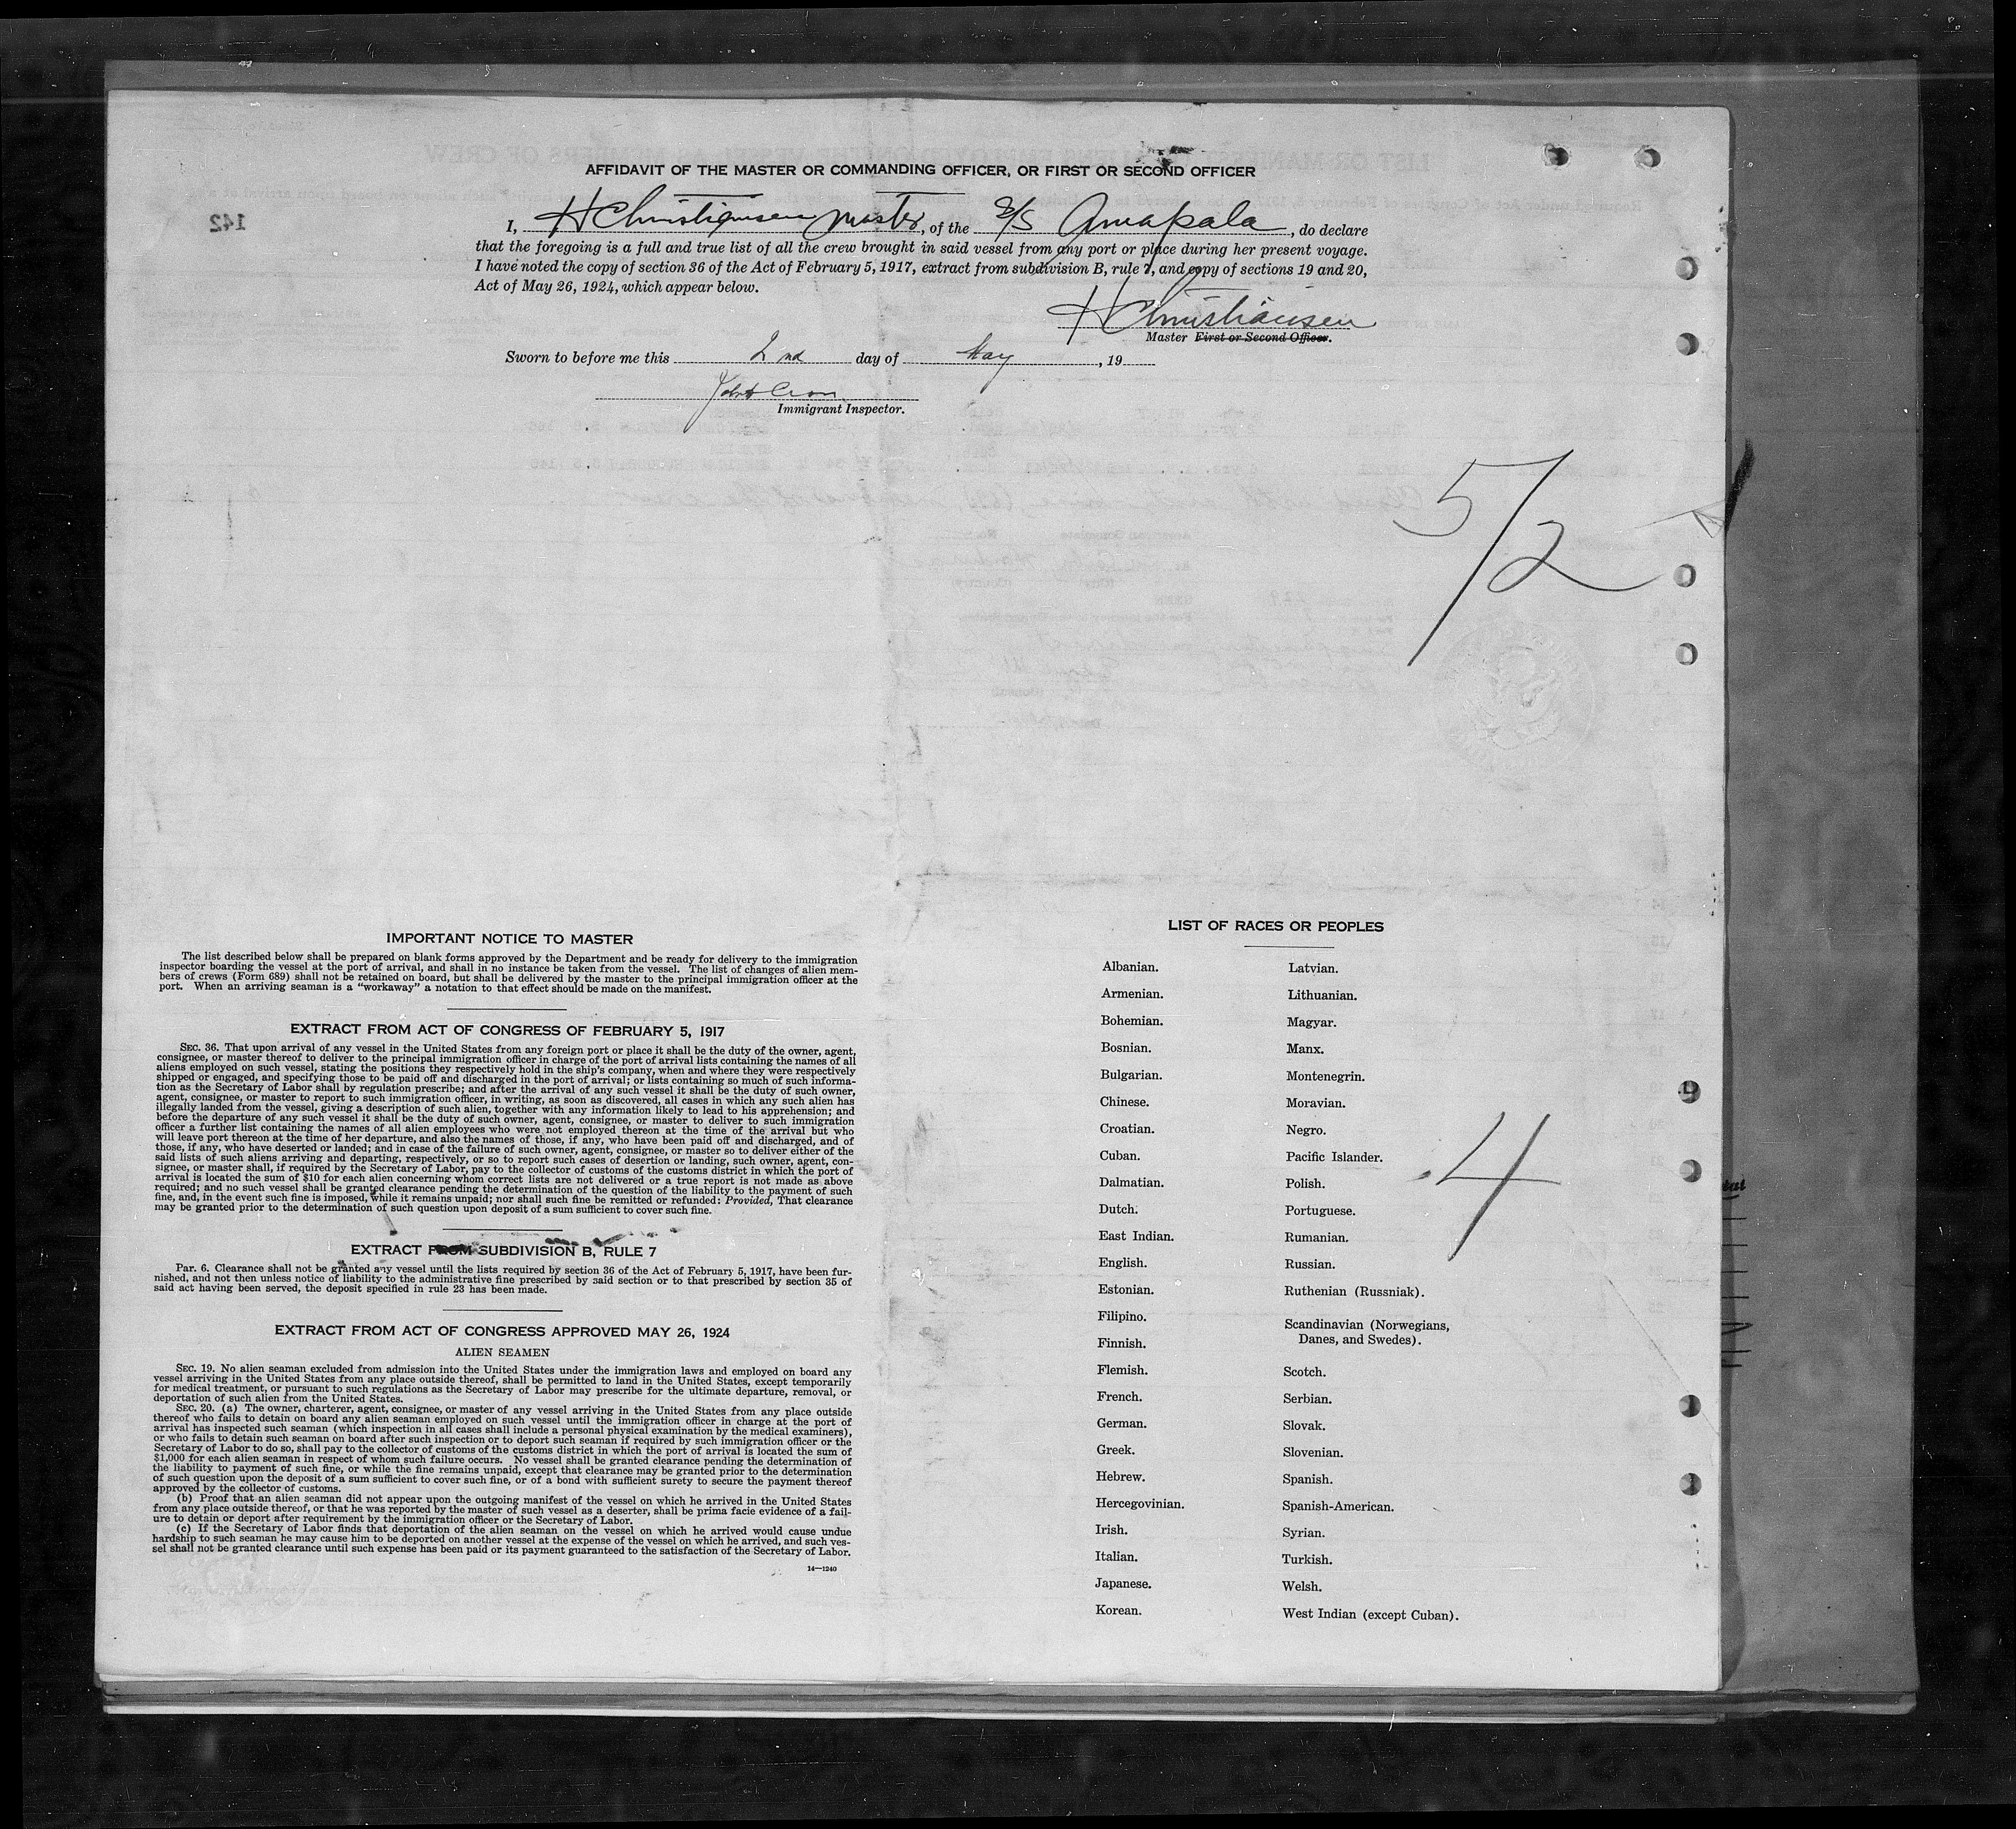 AFFIDAVIT OF THE MASTER OR COMMANDING OFFICER, OR FIRST OR SECOND OFFICER
I, H Christiansen master, of the S/S Amapala, do declare
that the foregoing is a full and true list of all the crew brought in said vessel from any port or place during her present voyage.
I have noted the copy of section 36 of the Act of February 5, 1917, extract from subdivision B, rule 7, and copy of sections 19 and 20,
Act of May 26, 1924, which appear below.
H Christiansen
Master First or Second Officer.
Sworn to before me this 2nd day of May, 19
Immigrant Inspector.
142
5/2
IMPORTANT NOTICE TO MASTER
The list described below shall be prepared on blank forms approved by the Department and be ready for delivery to the immigration
inspector boarding the vessel at the port of arrival, and shall in no instance be taken from the vessel. The list of changes of alien mem-
bers of crews (Form 689) shall not be retained on board, but shall be delivered by the master to the principal immigration officer at the
port. When an arriving seaman is a "workaway" a notation to that effect should be made on the manifest.
EXTRACT FROM ACT OF CONGRESS OF FEBRUARY 5, 1917
SEC. 36. That upon arrival of any vessel in the United States from any foreign port or place it shall be the duty of the owner, agent,
consignee, or master thereof to deliver to the principal immigration officer in charge of the port of arrival lists containing the names of all
aliens employed on such vessel, stating the positions they respectively hold in the ship's company, when and where they were respectively
shipped or engaged, and specifying those to be paid off and discharged in the port of arrival; or lists containing so much of such informa-
tion as the Secretary of Labor shall by regulation prescribe; and after the arrival of any such vessel it shall be the duty of such owner,
agent, consignee, or master to report to such immigration officer, in writing, as soon as discovered, all cases in which any such alien has
illegally landed from the vessel, giving a description of such alien, together with any information likely to lead to his apprehension; and
before the departure of any such vessel it shall be the duty of such owner, agent, consignee, or master to deliver to such immigration
officer a further list containing the names of all alien employees who were not employed thereon at the time of the arrival but who
will leave port thereon at the time of her departure, and also the names of those, if any, who have been paid off and discharged, and of
those, if any, who have deserted or landed; and in case of the failure of such owner, agent, consignee, or master so to deliver either of the
said lists of such aliens arriving and departing, respectively, or so to report such cases of desertion or landing, such owner, agent, con-
signee, or master shall, if required by the Secretary of Labor, pay to the collector of customs of the customs district in which the port of
arrival is located the sum of $10 for each alien concerning whom correct lists are not delivered or a true report is not made as above
required; and no such vessel shall be granted clearance pending the determination of the question of the liability to the payment of such
fine, and, in the event such fine is imposed, while it remains unpaid; nor shall such fine be remitted or refunded: Provided, That clearance
may be granted prior to the determination of such question upon deposit of a sum sufficient to cover such fine.
EXTRACT FROM SUBDIVISION B, RULE 7
Par. 6. Clearance shall not be granted any vessel until the lists required by section 36 of the Act of February 5, 1917, have been fur-
nished, and not then unless notice of liability to the administrative fine prescribed by said section or to that prescribed by section 35 of
said act having been served, the deposit specified in rule 23 has been made.
EXTRACT FROM ACT OF CONGRESS APPROVED MAY 26, 1924
ALIEN SEAMEN
SEC. 19. No alien seaman excluded from admission into the United States under the immigration laws and employed on board any
vessel arriving in the United States from any place outside thereof, shall be permitted to land in the United States, except temporarily
for medical treatment, or pursuant to such regulations as the Secretary of Labor may prescribe for the ultimate departure, removal, or
deportation of such alien from the United States.
SEC. 20. (a) The owner, charterer, agent, consignee, or master of any vessel arriving in the United States from any place outside
thereof who fails to detain on board any alien seaman employed on such vessel until the immigration officer in charge at the port of
arrival has inspected such seaman (which inspection in all cases shall include a personal physical examination by the medical examiners),
or who fails to detain such seaman on board after such inspection or to deport such seaman if required by such immigration officer or the
Secretary of Labor to do so, shall pay to the collector of customs of the customs district in which the port of arrival is located the sum of
$1,000 for each alien seaman in respect of whom such failure occurs. No vessel shall be granted clearance pending the determination of
the liability to payment of such fine, or while the fine remains unpaid, except that clearance may be granted prior to the determination
of such question upon the deposit of a sum sufficient to cover such fine, or of a bond with sufficient surety to secure the payment thereof
approved by the collector of customs.
(b) Proof that an alien seaman did not appear upon the outgoing manifest of the vessel on which he arrived in the United States
from any place outside thereof, or that he was reported by the master of such vessel as a deserter, shall be prima facie evidence of a fail-
ure to detain or deport after requirement by the immigration officer or the Secretary of Labor.
(c) If the Secretary of Labor finds that deportation of the alien seaman on the vessel on which he arrived would cause undue
hardship to such seaman he may cause him to be deported on another vessel at the expense of the vessel on which he arrived, and such ves-
sel shall not be granted clearance until such expense has been paid or its payment guaranteed to the satisfaction of the Secretary of Labor.
14—1240
LIST OF RACES OR PEOPLES
Albanian.
Armenian.
Bohemian.
Bosnian.
Bulgarian.
Chinese.
Croatian.
Cuban.
Dalmatian.
Dutch.
East Indian.
English.
Estonian.
Filipino.
Finnish.
Flemish.
French.
German.
Greek.
Hebrew.
Hercegovinian.
Irish.
Italian.
Japanese.
Korean.
Latvian.
Lithuanian.
Magyar.
Manx.
Montenegrin.
Moravian.
Negro.
Pacific Islander.
Polish.
Portuguese.
Rumanian.
Russian.
Ruthenian (Russniak).
Scandinavian (Norwegians,
Danes, and Swedes).
Scotch.
Serbian.
Slovak.
Slovenian.
Spanish.
Spanish-American.
Syrian.
Turkish.
Welsh.
West Indian (except Cuban).
4